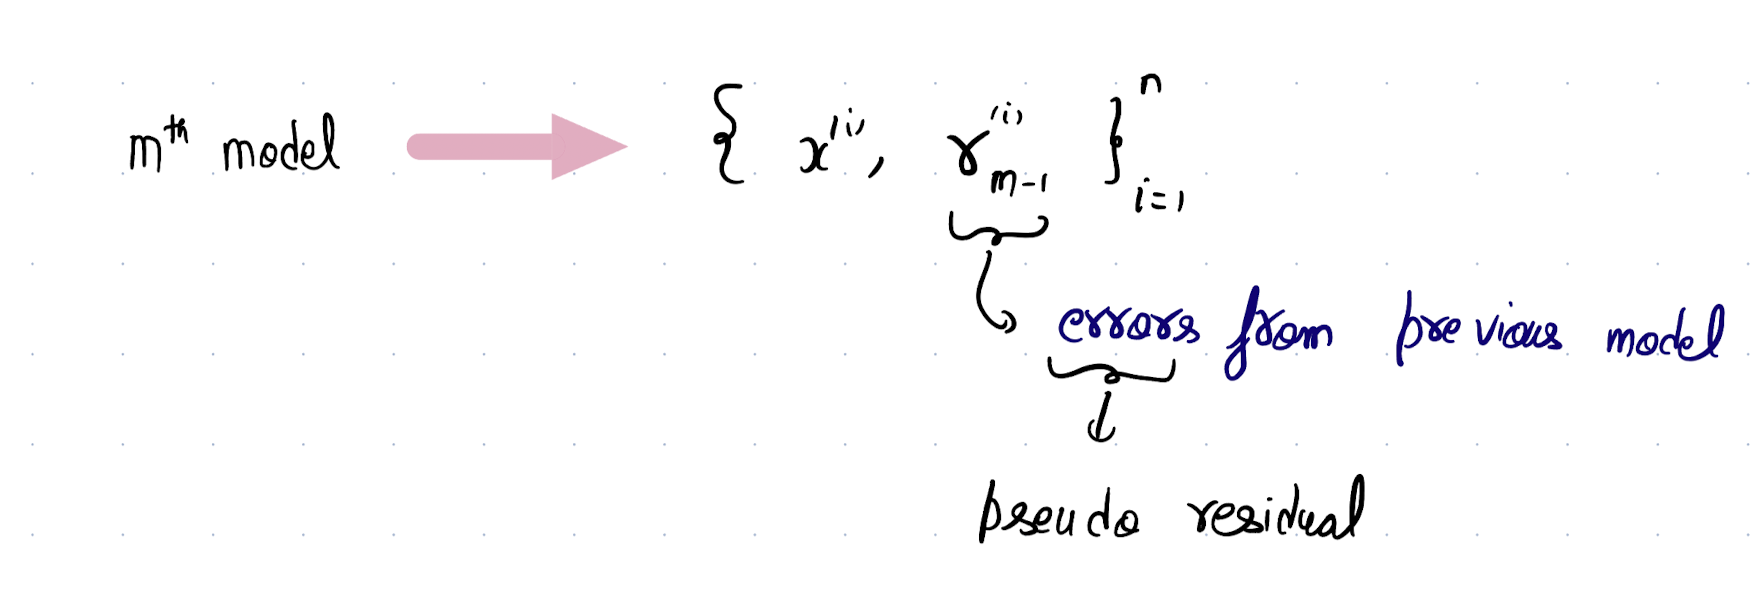 mᵗʰ model → { x⁽ⁱ⁾, r⁽ⁱ⁾ₘ₋₁ }ⁿᵢ₌₁
errors from previous model
pseudo residual